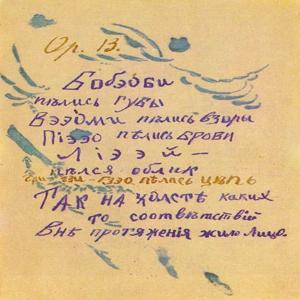 Ор. 13.
Бобэоби
пѣлись губы
Вээоми пѣлись взоры
Піээо пѣлись брови
Ліээй –
пѣлся облик
Гзи – гзи – гзэо пѣлась цѣпь
ТАК НА холстѣ каких
то соотвѣтствій
Внѣ протяженія жило Лицо.